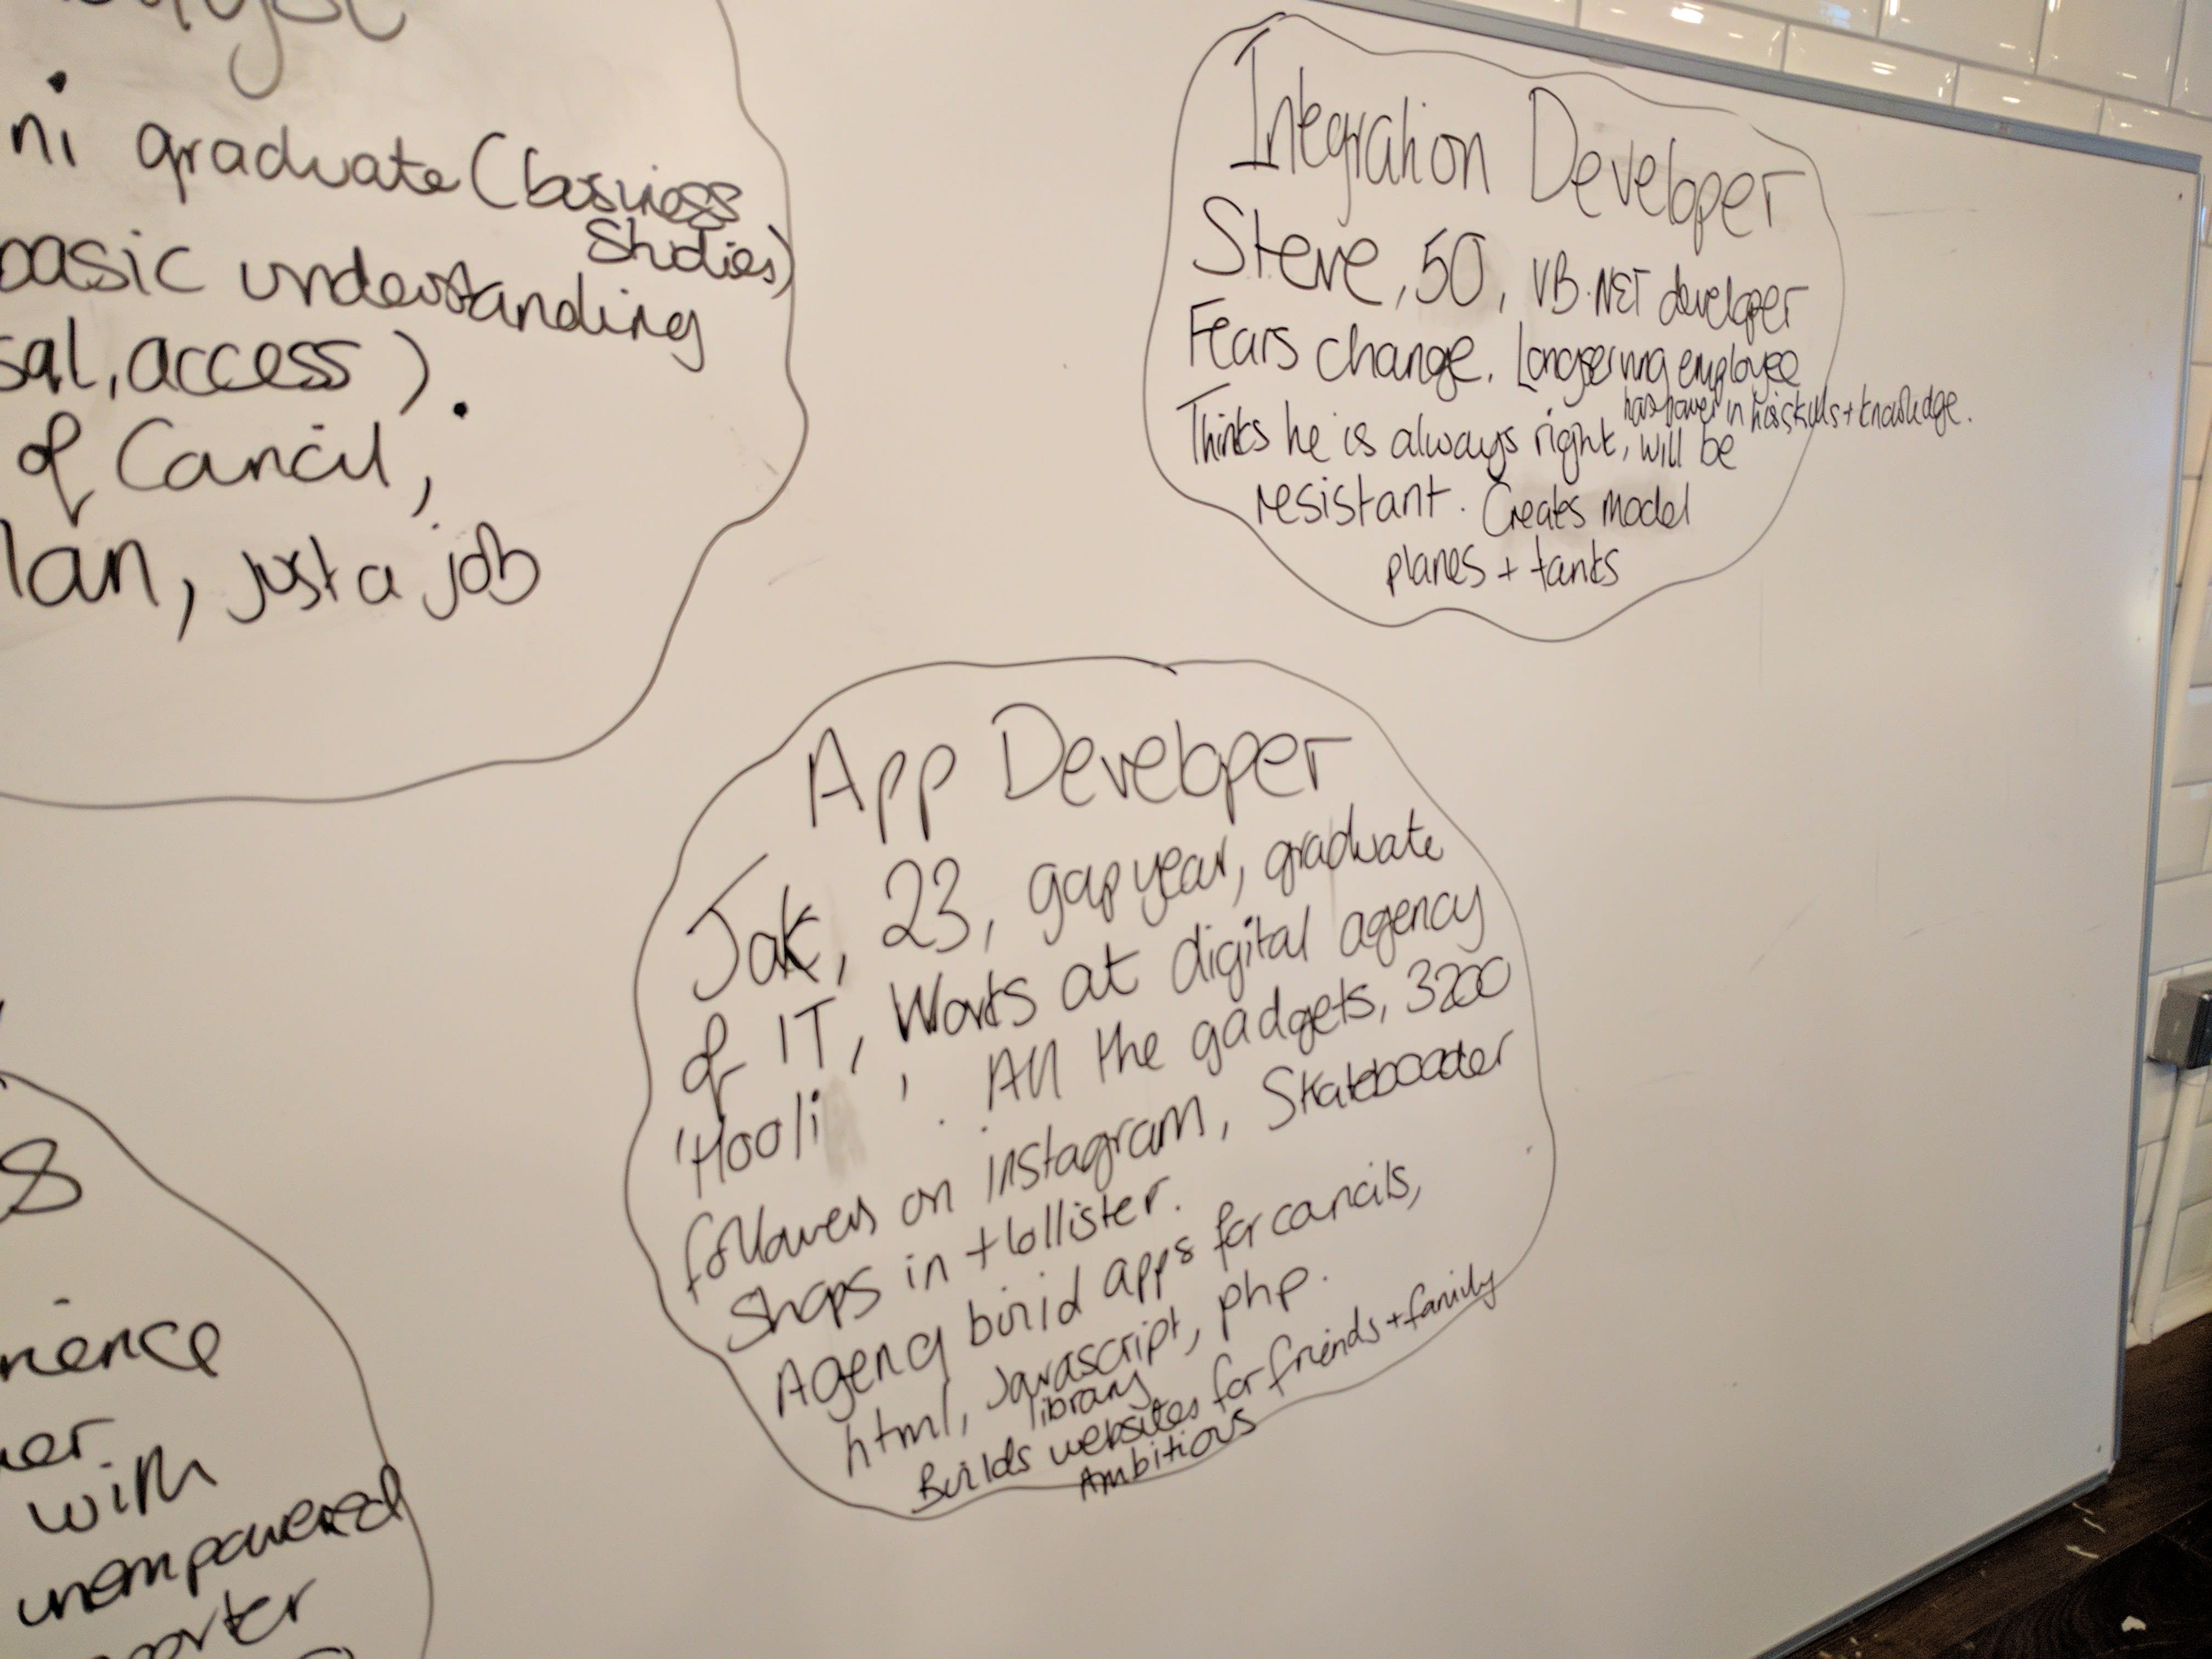 ni graduate (business
studies)
basic understanding
sql, access).
of Council,
lan, just a job
Integration Developer
Steve, 50, VB.NET developer
Fears change. Longserving employee
has power in his skills + knowledge.
Thinks he is always right, will be
resistant. Creates model
planes + tanks
App Developer
Jak, 23, gap year, graduate
of IT, Works at digital agency
'Hooli'. All the gadgets, 3200
followers on instagram, Skateboader
Shops in Hollister.
Agency build apps for councils,
html, Javascript, php.
library
Builds websites for friends + family
Ambitious
s
rience
er
with
unempowered
orter